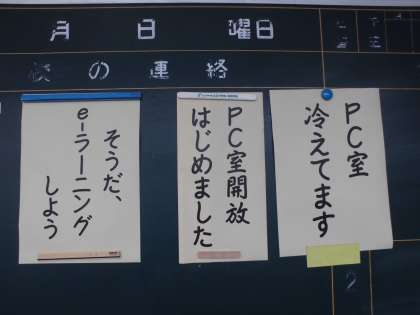 月 日 曜日
校の連絡
PC室
冷えてます
PC室開放
はじめました
そうだ、
e-ラーニング
しよう
2